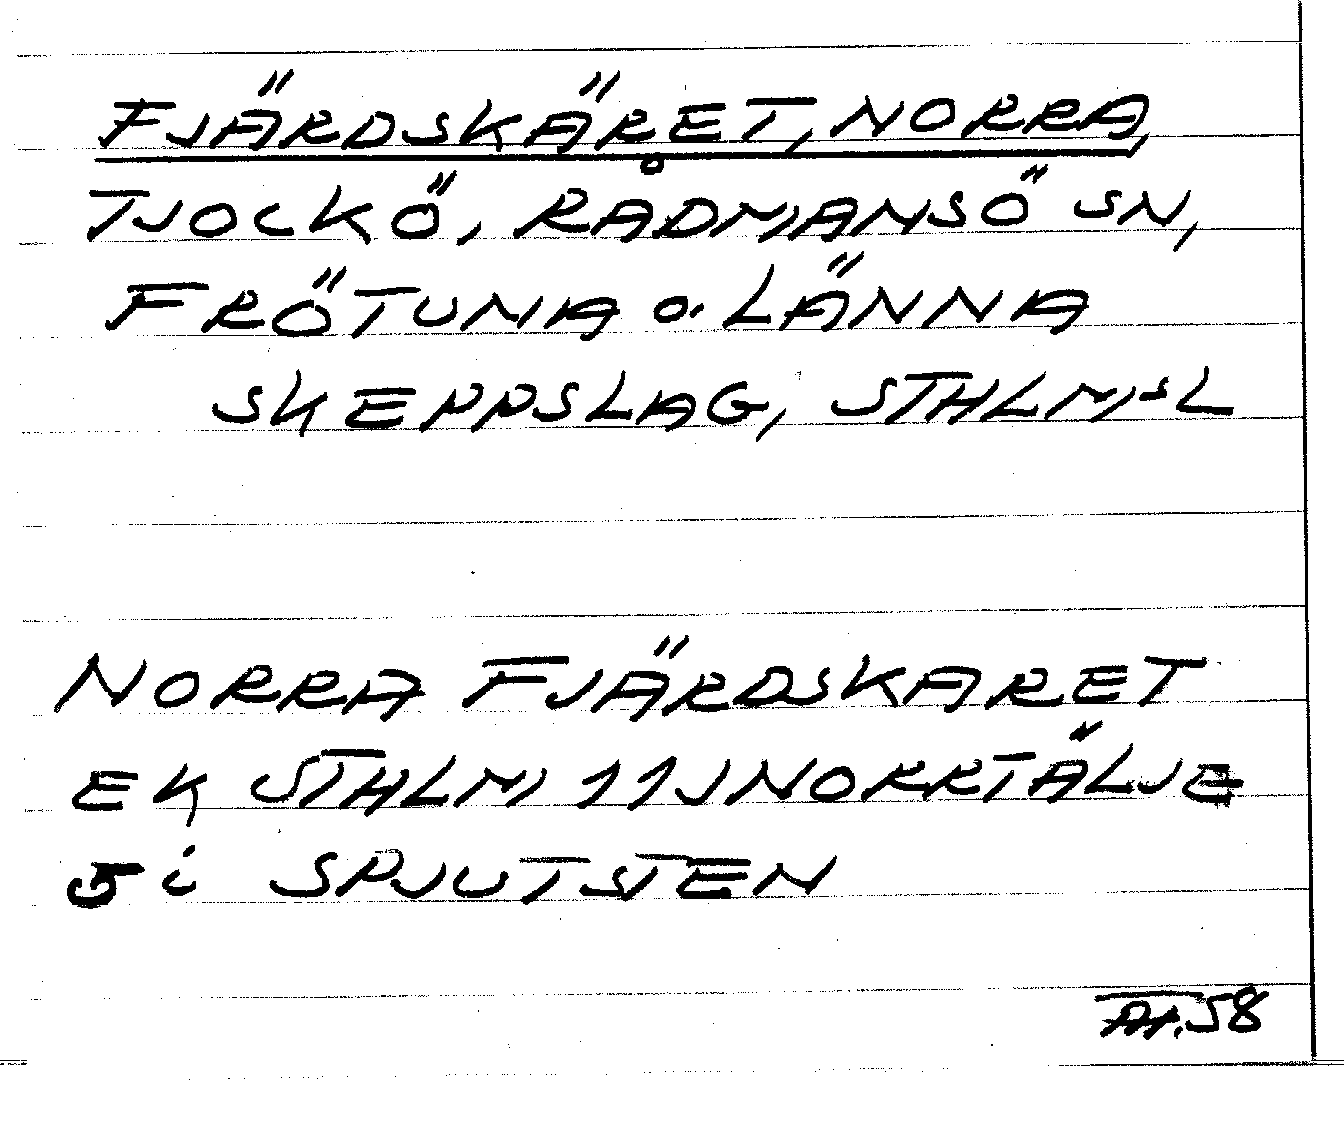 FJÄRDSKÄRET, NORRA,
TJOCKÖ, RÅDMANSÖ SN,
FRÖTUNA o. LÄNNA
SKEPPSLAG, STHLM-S L
NORRA FJÄRDSKARET
EK STHLM 11J NORRTÄLJE
5 i SPJUTSTEN
58